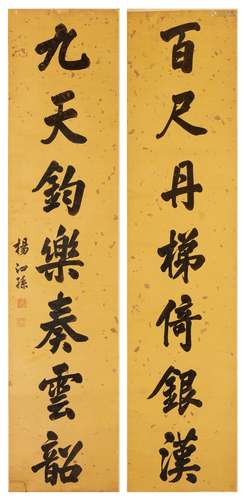 百尺丹梯倚銀漢
九天鈞樂奏雲韶
楊沂孫